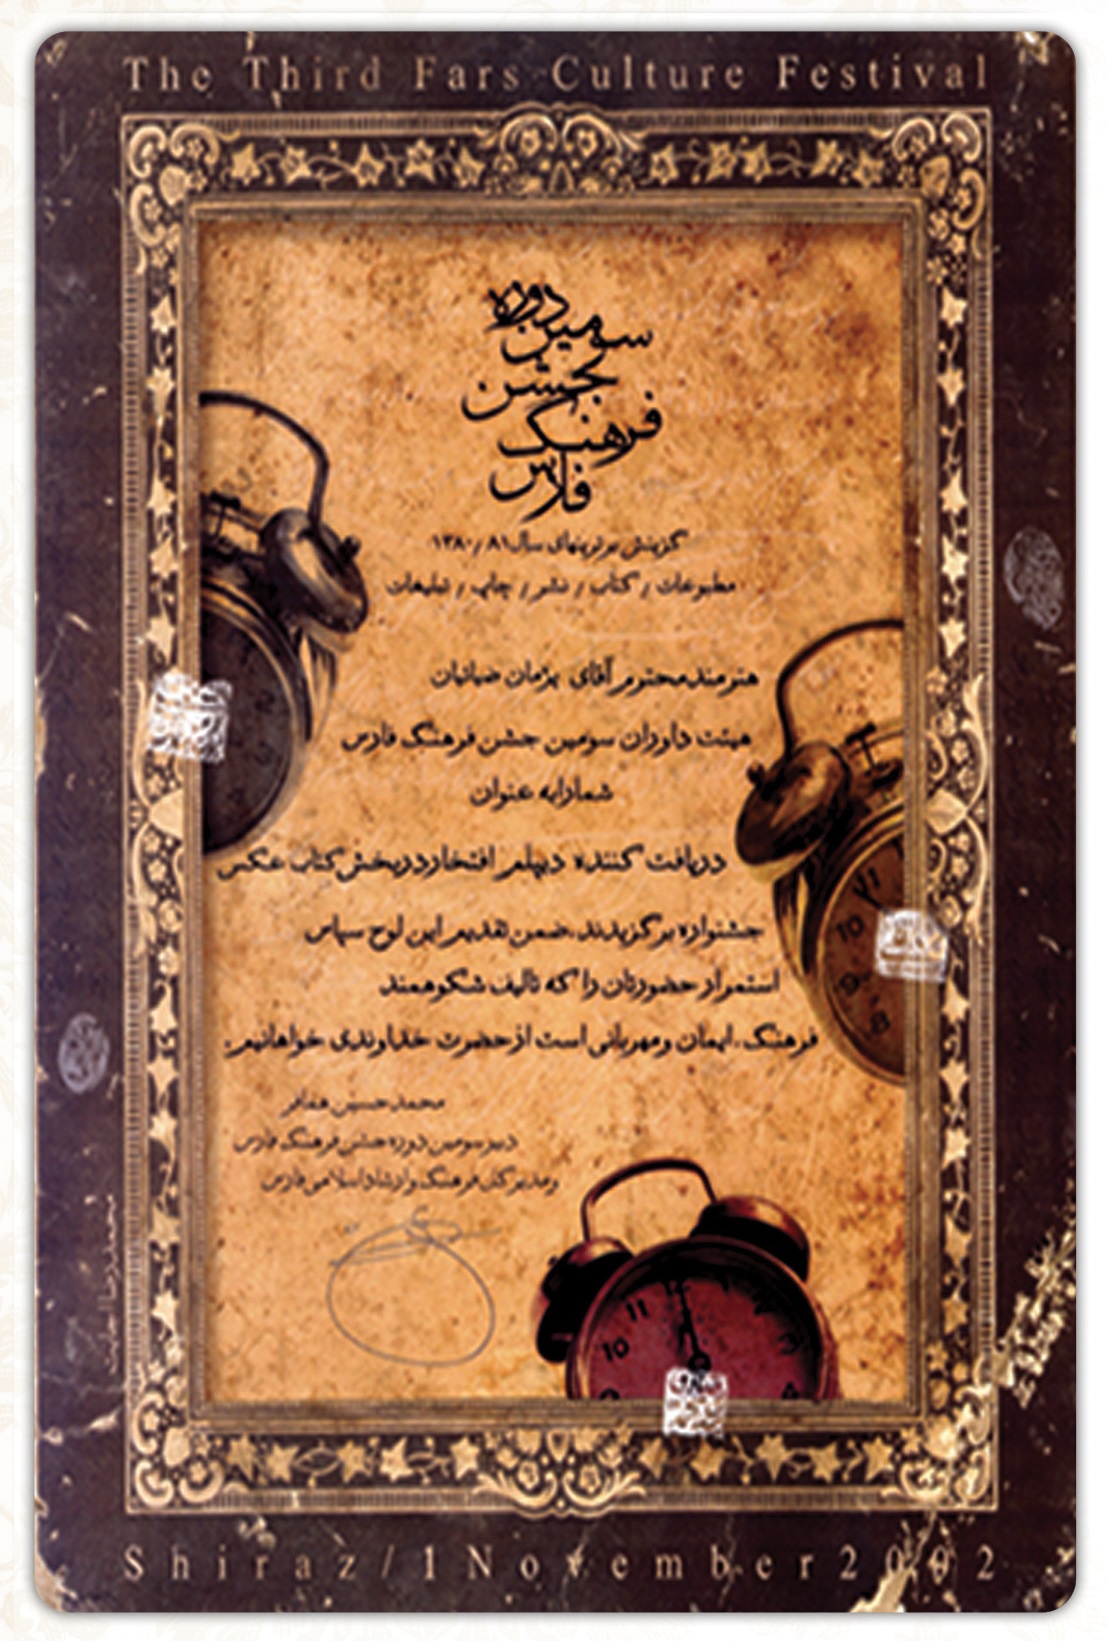 The Third Fars Culture Festival
سومین دوره
جشن
فرهنگ
فارس
گزینش برترینهای سال ۸۱ / ۱۳۸۰
مطبوعات / کتاب / نشر / چاپ / تبلیغات
هنرمند محترم آقای پژمان ضیائیان
هیئت داوران سومین جشن فرهنگ فارس
شما را به عنوان
دریافت کننده دیپلم افتخار در بخش کتاب عکس
جشنواره برگزیدند، ضمن تقدیم این لوح سپاس
استمرار حضورتان را که تالیف شکوهمند
فرهنگ، ایمان و مهربانی است از حضرت خداوندی خواهانیم.
محمد حسین همافر
دبیر سومین دوره جشن فرهنگ فارس
و مدیر کل فرهنگ و ارشاد اسلامی فارس
11
10
9
8
11
10
9
4
Shiraz/1November2002